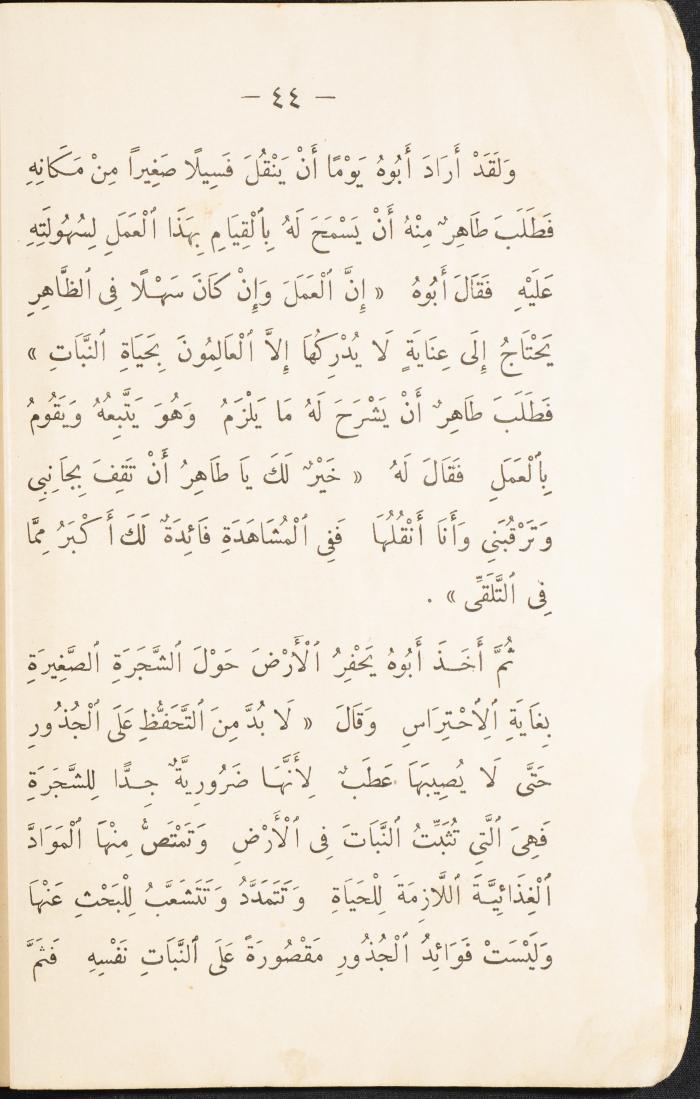 — ٤٤ —
وَلَقَدْ أَرَادَ أَبُوهُ يَوْمًا أَنْ يَنْقُلَ فَسِيلًا صَغِيراً مِنْ مَكَانِهِ
فَطَلَبَ طَاهِرٌ مِنْهُ أَنْ يَسْمَحَ لَهُ بِٱلْقِيَامِ بِهَذَا ٱلْعَمَلِ لِسُهُولَتِهِ
عَلَيْهِ فَقَالَ أَبُوهُ « إِنَّ ٱلْعَمَلَ وَإِنْ كَانَ سَهْلًا فِى ٱلظَّاهِرِ
يَحْتَاجُ إِلَى عِنَايَةٍ لَا يُدْرِكُهَا إِلاَّ ٱلْعَالِمُونَ بِحَيَاةِ ٱلنَّبَاتِ »
فَطَلَبَ طَاهِرٌ أَنْ يَشْرَحَ لَهُ مَا يَلْزَمُ وَهُوَ يَتَّبِعُهُ وَيَقُومُ
بِٱلْعَمَلِ فَقَالَ لَهُ « خَيْرٌ لَكَ يَا طَاهِرُ أَنْ تَقِفَ بِجَانِبِى
وَتَرْقُبَنِى وَأَنَا أَنْقُلُهَا فَفِى ٱلْمُشَاهَدَةِ فَائِدَةٌ لَكَ أَكْبَرُ مِمَّا
فِى ٱلتَّلَقِّى » .
ثُمَّ أَخَذَ أَبُوهُ يَحْفِرُ ٱلْأَرْضَ حَوْلَ ٱلشَّجَرَةِ ٱلصَّغِيرَةِ
بِغَايَةِ ٱلِٱحْتِرَاسِ وَقَالَ « لَا بُدَّ مِنَ ٱلتَّحَفُّظِ عَلَى ٱلْجُذُورِ
حَتَّى لَا يُصِيبَهَا عَطَبٌ لِأَنَّهَا ضَرُورِيَّةٌ جِدًّا لِلشَّجَرَةِ
فَهِىَ ٱلَّتِى تُثَبِّتُ ٱلنَّبَاتَ فِى ٱلْأَرْضِ وَتَمْتَصُّ مِنْهَا ٱلْمَوَادَّ
ٱلْغِذَائِيَّةَ ٱللَّازِمَةَ لِلْحَيَاةِ وَتَتَمَدَّدُ وَتَتَشَعَّبُ لِلْبَحْثِ عَنْهَا
وَلَيْسَتْ فَوَائِدُ ٱلْجُذُورِ مَقْصُورَةً عَلَى ٱلنَّبَاتِ نَفْسِهِ فَثَمَّ